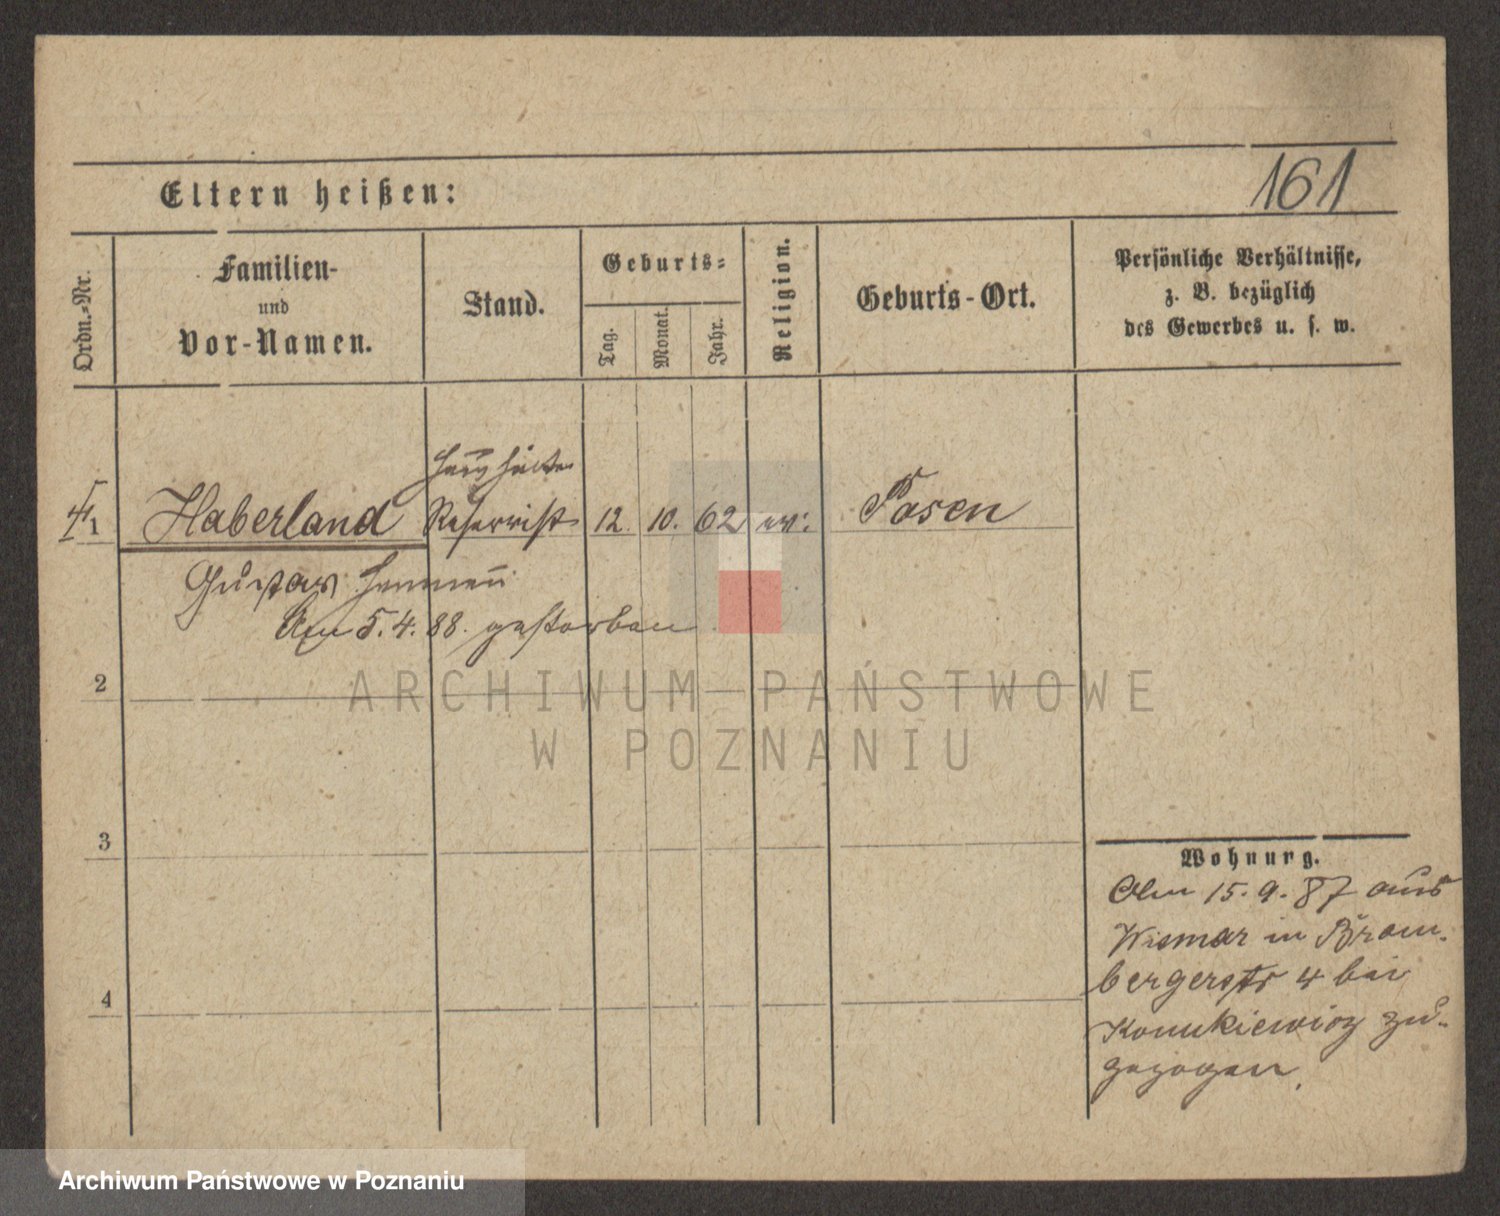 161
Eltern heißen:
Ordn.-Nr.
Familien-
und
Vor-Namen.
Stand.
Geburts-
Tag.
Monat.
Jahr.
Religion.
Geburts-Ort.
Persönliche Verhältnisse,
z. B. bezüglich
des Gewerbes u. s. w.
1 Haberland Reservist 12. 10. 62 ev. Posen
Gustav Hermann
Am 5.4.88. gestorben
2
3
4
Wohnung.
Am 15.9.87 aus
Wismar in Brom-
bergerstr 4 bei
zu-
gezogen.
ARCHIWUM PAŃSTWOWE
W POZNANIU
Archiwum Państwowe w Poznaniu